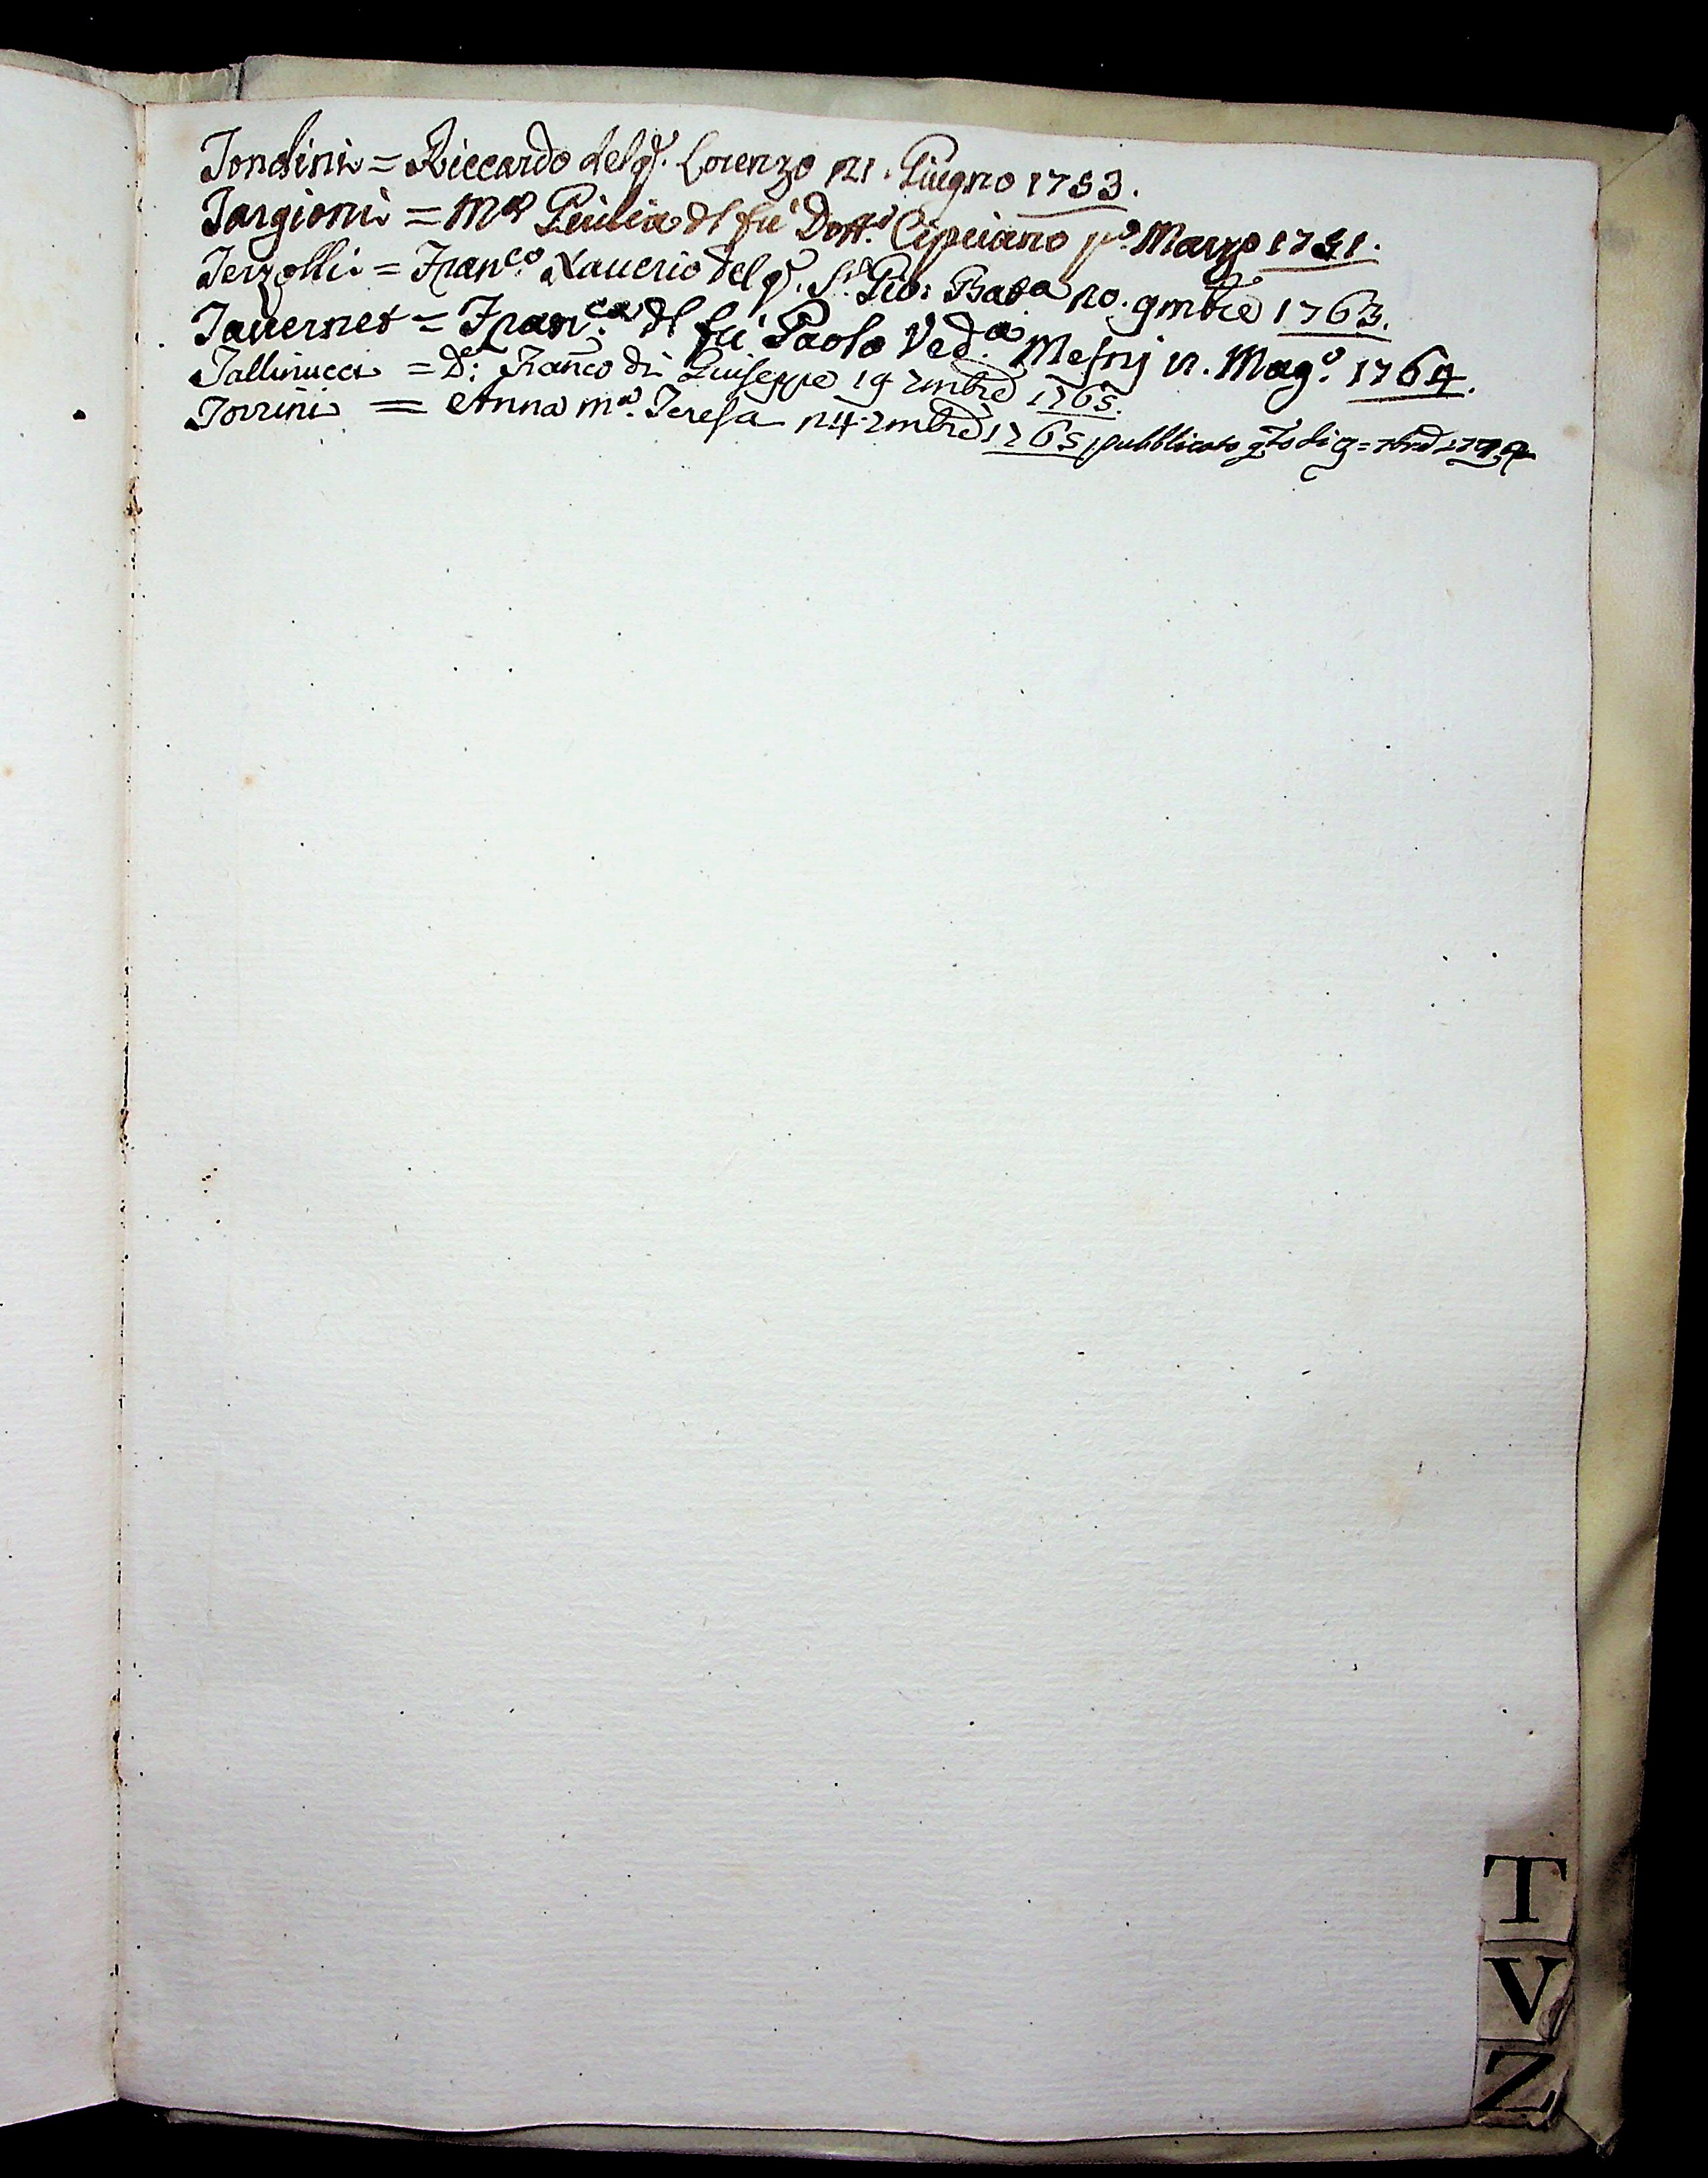 Tondini = Riccardo del q. Lorenzo 21. Giugno 1753.
Targioni = Ma Giulia dl fù Dott. Cipriano po Marzo 1731.
Terzolli = Franco. Xauerio del q. Sr. Gio: Bata 20. 9mbre 1763.
Tauernet = Franca. dl fù Paolo Veda. Mesnj 12. Mago. 1764.
Tallinucci = D: Franco di Giuseppe 19 xmbre 1765.
Torrini = Anna ma. Teresa 24 xmbre 1765 pubblicato
T
V
Z